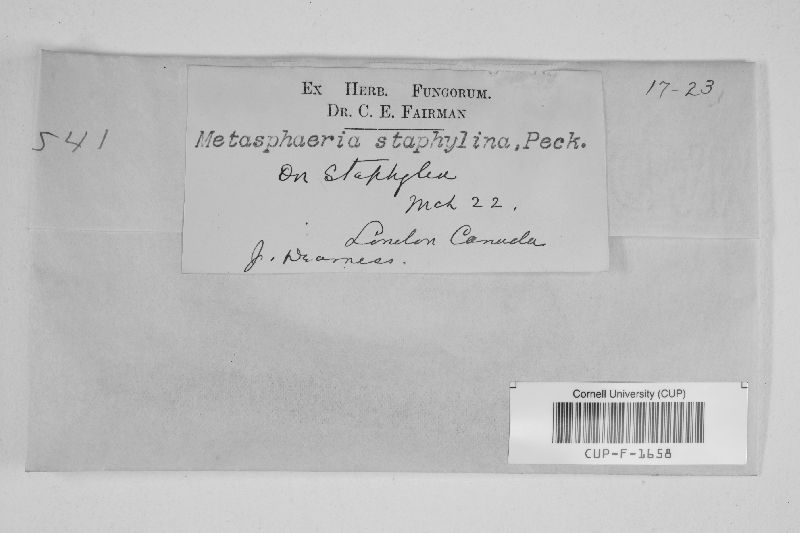 541
17-23
EX HERB. FUNGORUM.
DR. C. E. FAIRMAN
Metasphaeria staphylina, Peck.
On Staphylea
Mch 22.
London Canada
J. Dearness.
Cornell University (CUP)
CUP-F-1658